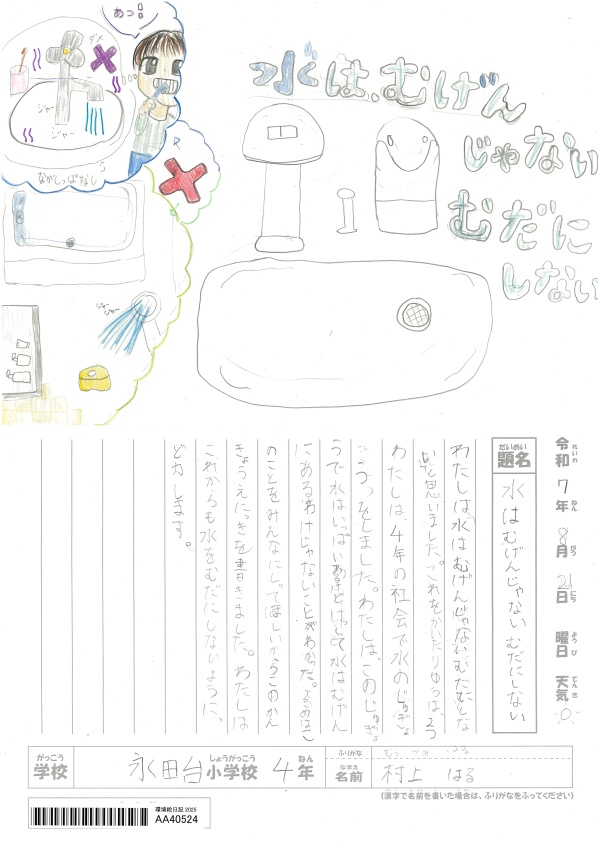 あっ!!
ダメ
ジャー
ジャー
ながしっぱなし
水は、むげん
じゃない
むだに
しない
ジャー
ジャー
令和7年8月21日 曜日 天気
れいわ ねん がつ にち ようび てんき
だいめい
題名
水はむげんじゃないむだにしない
わたしは水はむげんじゃないむだ
いと思いました。これをかいたりゆうは、2つ
わたしは4年の社会で水のじゅぎょ
うをしました。わたしは、このじゅぎょ
うで水はいっぱいあるけどけして水はむげん
にあるわけじゃないことがわかった。
のことをみんなにしってほしいからこのかん
きょうえにっきを書きました。わたしは
これからも水をむだにしないように、
ど力します。
がっこう
学校
永田台小学校 4年
しょうがっこう ねん
ふりがな
むらかみ はる
なまえ
名前
村上 はる
(漢字で名前を書いた場合は、ふりがなをふってください)
環境絵日記 2025
AA40524